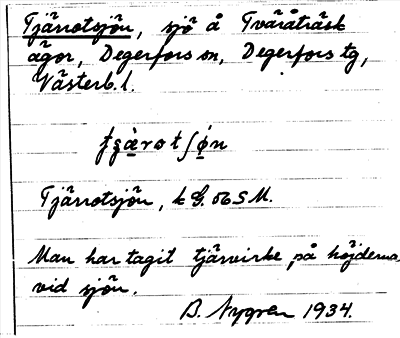 Tjärrotsjön, sjö å Tvåråträsk
ägor, Degerfors sn, Degerfors tg,
Västerb. l.
Tjärrotsjön, k G. 56 S M.
Man har tagit tjärvirke på höjderna
vid sjön.
B. Nygren 1934.